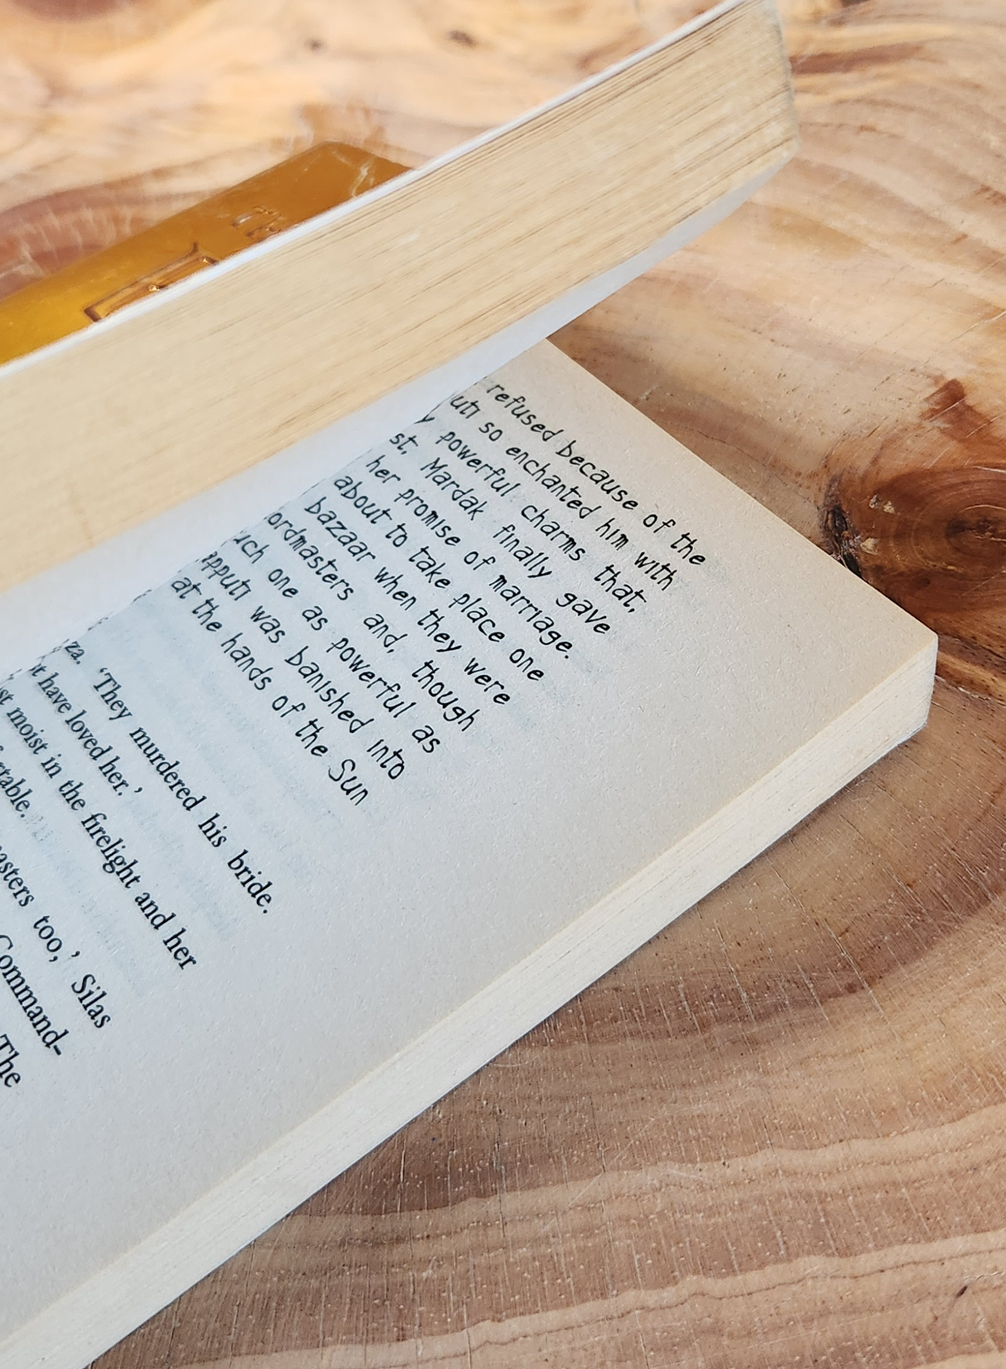 refused because of the
so enchanted him with
powerful charms that,
Mardak finally gave
her promise of marriage.
about to take place one
bazaar when they were
and, though
one as powerful as
was banished into
at the hands of the Sun
'They murdered his bride.
have loved her.'
moist in the firelight and her
too,' Silas
Command-
The